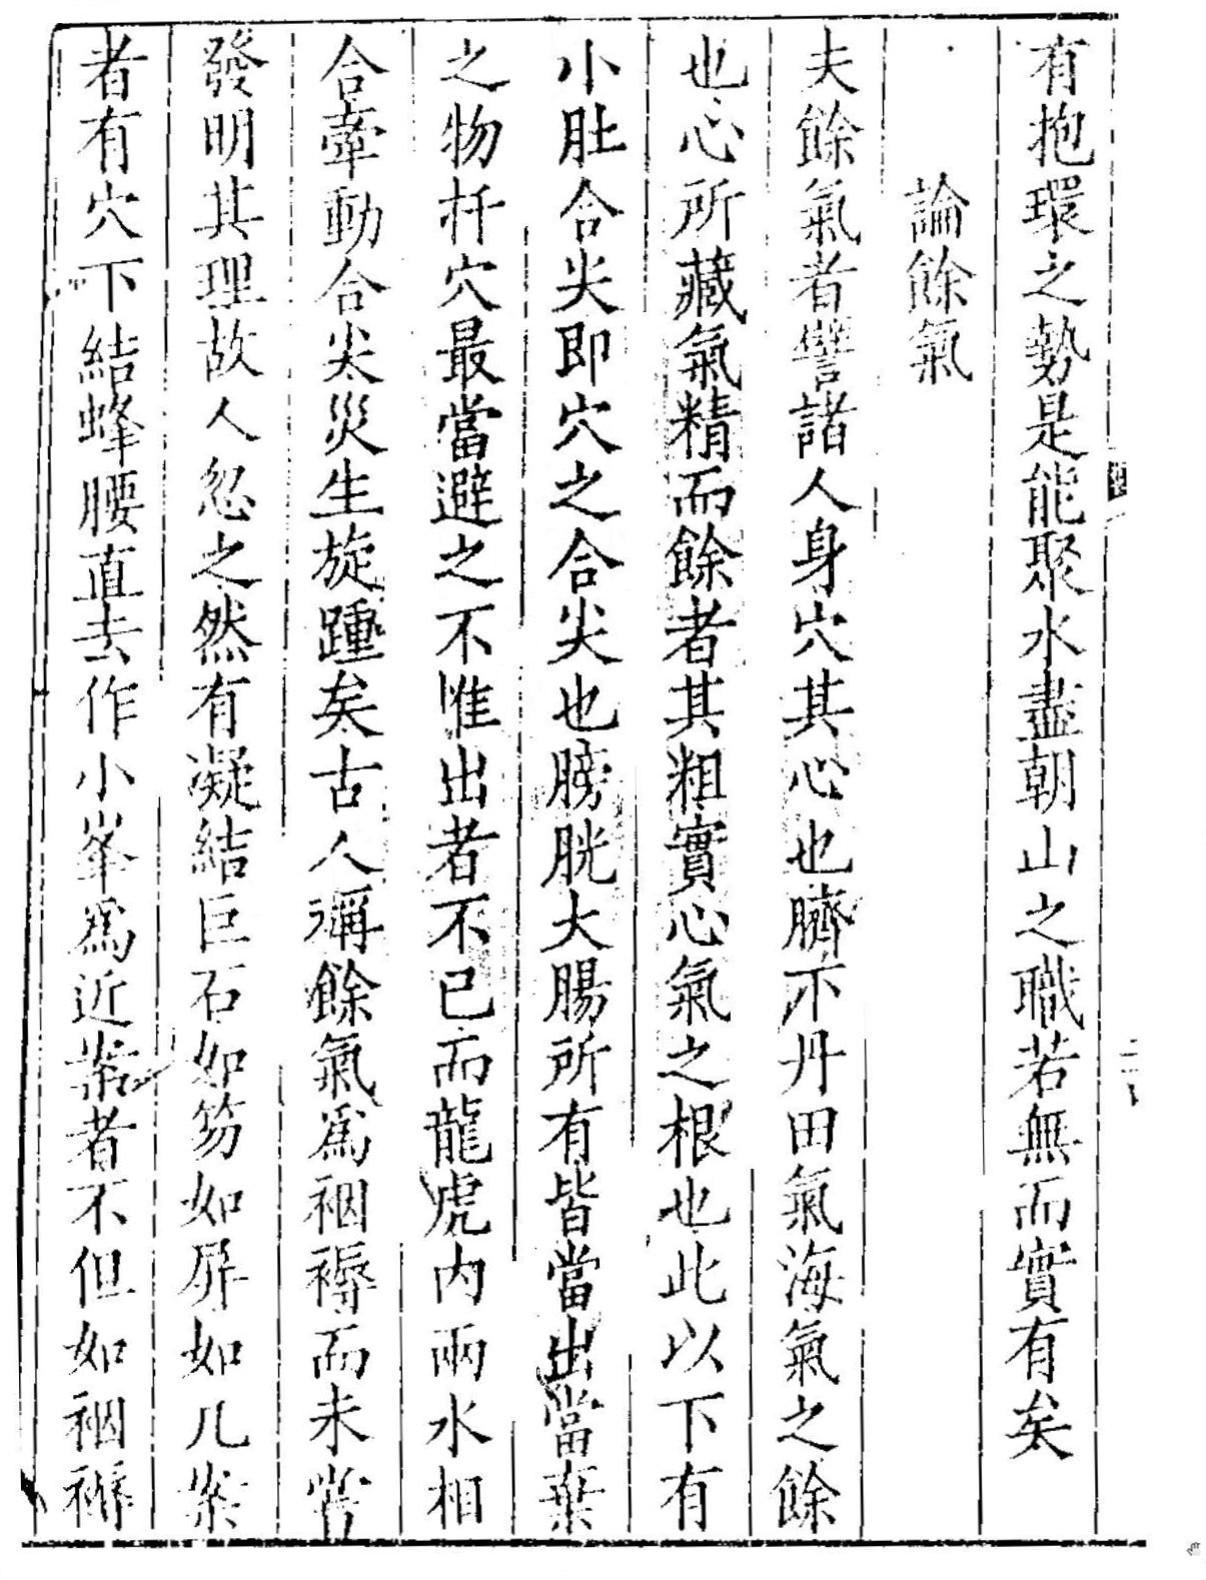 有抱環之勢是能聚水盡朝山之職若無而實有矣
論餘氣
夫餘氣者譬諸人身穴其心也臍下丹田氣海氣之餘
也心所藏氣精而餘者其粗實心氣之根也此以下有
小肚合尖即穴之合尖也膀胱大腸所有皆當出當棄
之物扦穴最當避之不惟出者不已而龍虎内兩水相
合牽動合尖災生旋踵矣古人稱餘氣爲裀褥而未嘗
發明其理故人忽之然有凝結巨石如笏如屏如几案
者有穴下結蜂腰直去作小峯爲近案者不但如裀褥